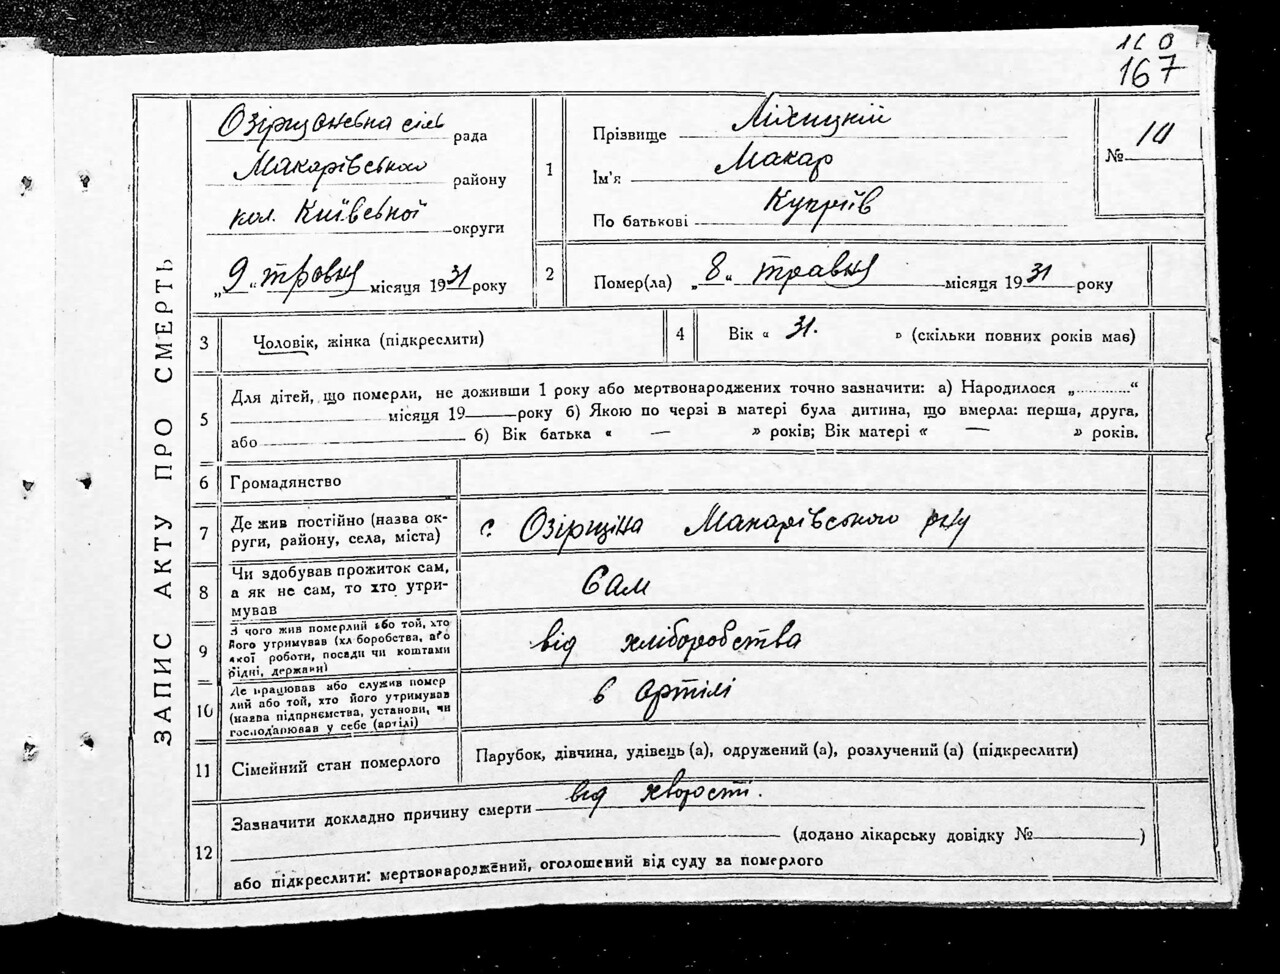 167
ЗАПИС АКТУ ПРО СМЕРТЬ
рада
Макарівського району
кол. Київської округи
„9“ травня місяця 1931 року
1
Прізвище
Ім'я Макар
По батькові Купріїв
№ 10
2
Помер(ла) „8“ травня місяця 1931 року
3
Чоловік, жінка (підкреслити)
4
Вік „ 31. “ (скільки повних років має)
5
Для дітей, що померли, не доживши 1 року або мертвонароджених точно зазначити: а) Народилося „..........“
місяця 19 року б) Якою по черзі в матері була дитина, що вмерла: перша, друга,
або б) Вік батька « — » років; Вік матері « — » років.
6
Громадянство
7
Де жив постійно (назва ок-
руги, району, села, міста)
с. Озірщина Макарівського р-ну
8
Чи здобував прожиток сам,
а як не сам, то хто утри-
мував
Сам
9
З чого жив померлий або той, хто
його утримував (хліборобства, або
якої роботи, посади чи коштами
рідні, держави)
від хліборобства
10
Де працював або служив помер
лий або той, хто його утримував
(назва підприємства, установи, чи
господарював у себе (артілі)
в артілі
11
Сімейний стан померлого
Парубок, дівчина, удівець (а), одружений (а), розлучений (а) (підкреслити)
12
Зазначити докладно причину смерти від хворості.
(додано лікарську довідку № )
або підкреслити: мертвонароджений, оголошений від суду за померлого